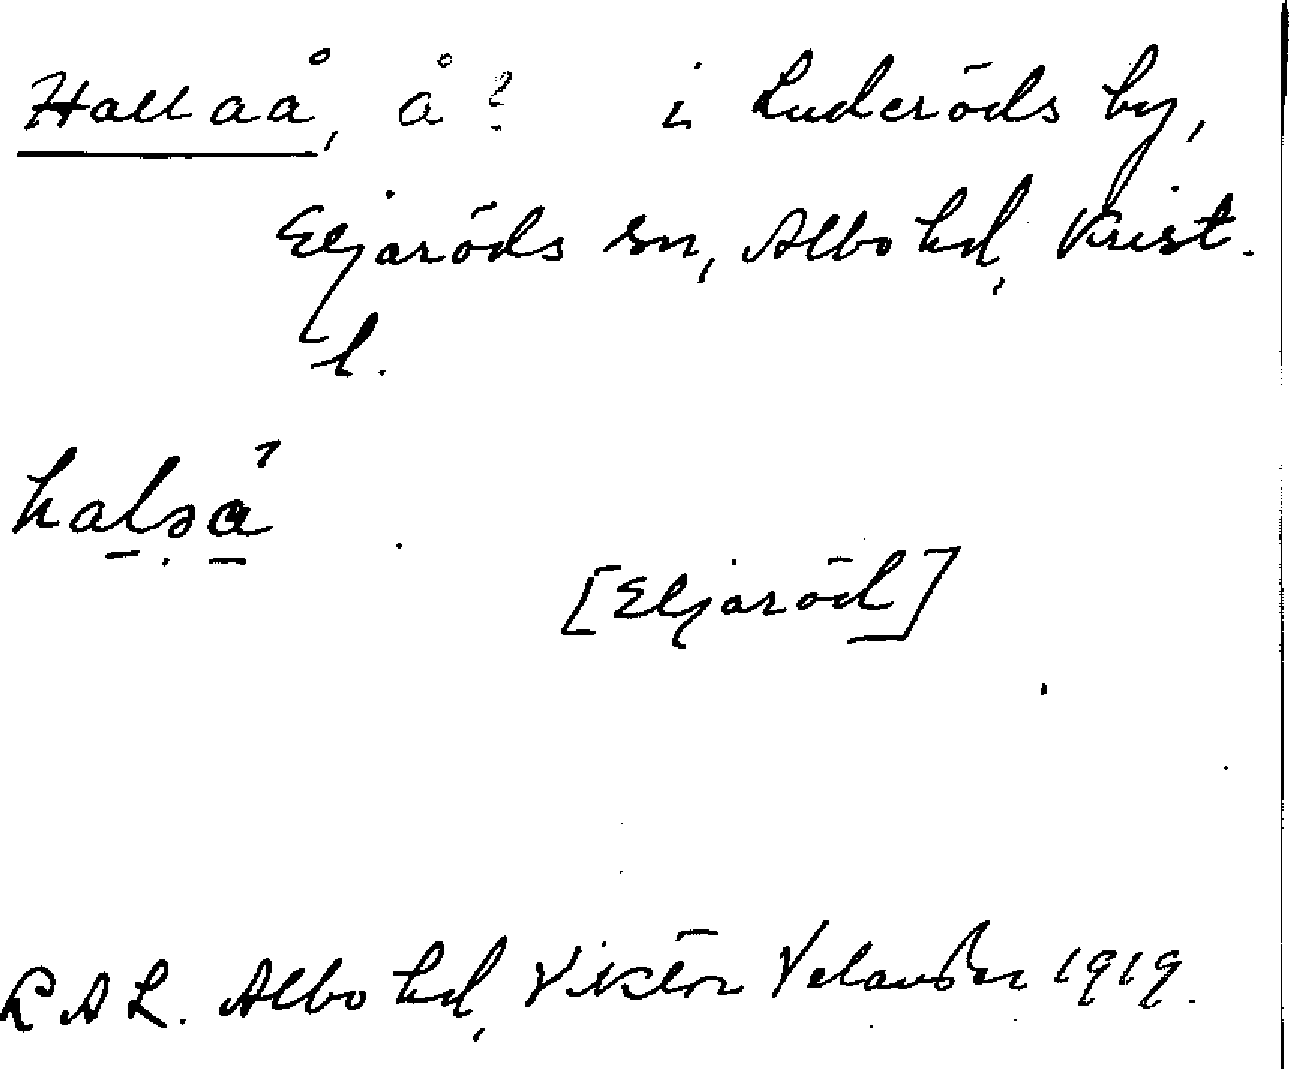 Hallaå, å? i Luderöds by,
Eljaröds sn, Albo hd, Krist.
l.
halsa
[Eljaröd]
R A L. Albo hd, Viktor Velander 1919.